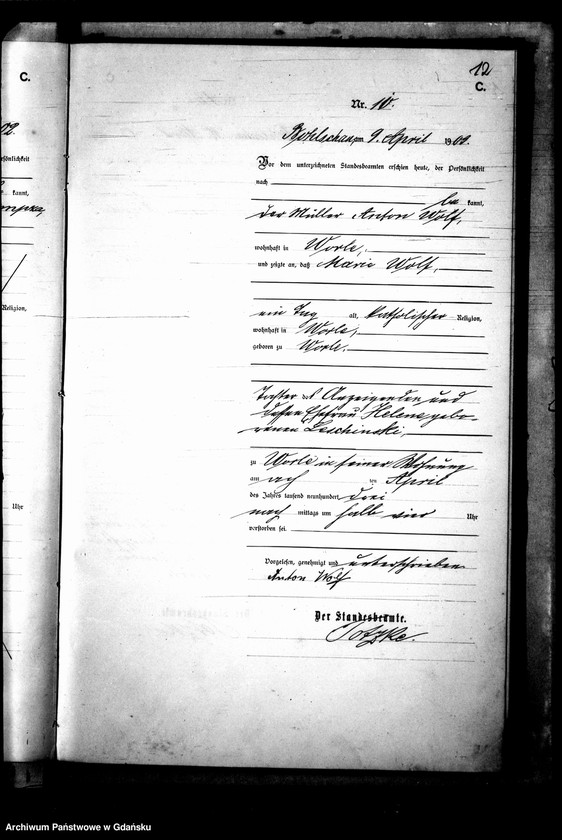 C.
12
C.
Nr. 10.
am 9. April 1903.
Vor dem unterzeichneten Standesbeamten erschien heute, der Persönlichkeit
nach
be kannt,
der Müller Anton Wolf,
wohnhaft in Worle,
und zeigte an, daß Marie Wolf,
ein Tag alt, katholischer Religion,
wohnhaft in Worle,
geboren zu Worle,
Tochter des Anzeigenden und
dessen Ehefrau Helene, gebo-
renen Leschinski,
zu Worle in seiner Wohnung
am acht ten April
des Jahres tausend neunhundert drei
nach mittags um halb vier Uhr
verstorben sei.
Vorgelesen, genehmigt und unterschrieben
Anton Wolf
Der Standesbeamte.
02.
Persönlichkeit
kannt,
Religion,
Uhr
Archiwum Państwowe w Gdańsku